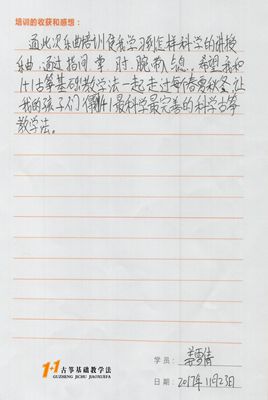 培训的收获和感想：
通此次乐曲培训使我学习到怎样科学的讲授
乐曲.通过指间.掌.肘.腕.希望我和
1+1古筝基础教学法一起走过每个春夏秋冬.让
我的孩子们用1+1最科学最完善的科学古筝
教学法。
1+1古筝基础教学法
GUZHENG JICHU JIAOXUEFA
学员：
日期：2017年11月23日